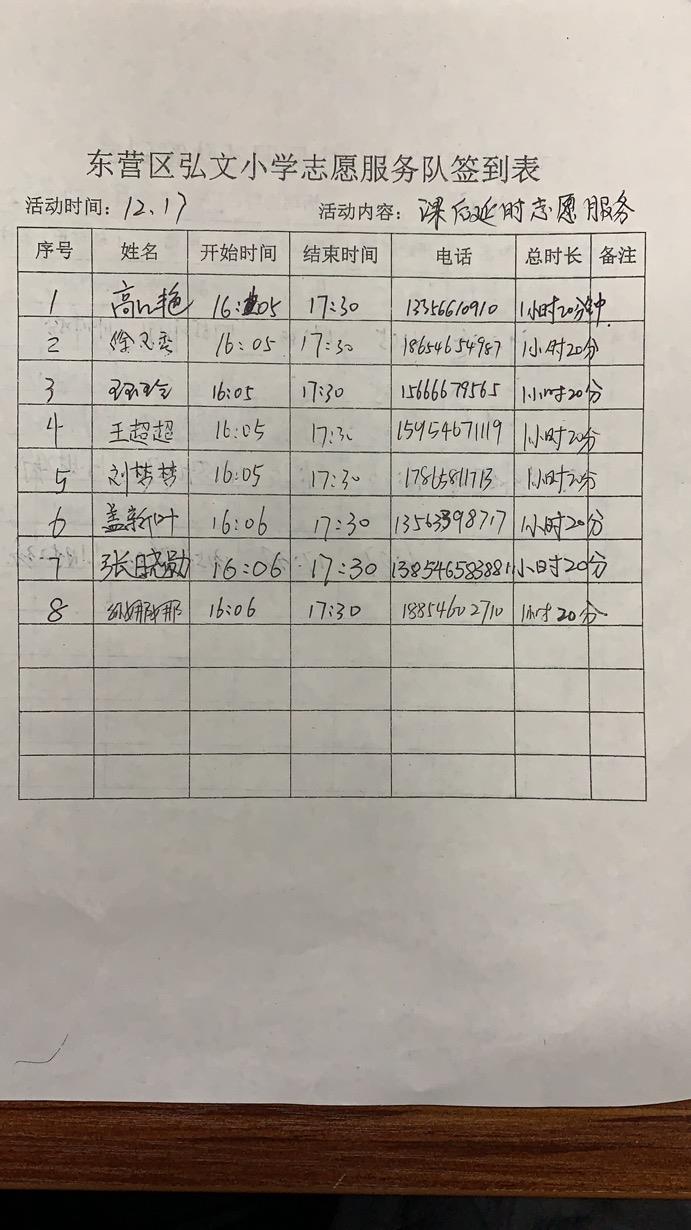 东营区弘文小学志愿服务队签到表
活动时间：12.17 活动内容：课后延时志愿服务
序号 姓名 开始时间 结束时间 电话 总时长 备注
1 高 艳 16:05 17:30 13356610910 1小时20分钟
2 徐 16:05 17:30 18654654987 1小时20分
3 16:05 17:30 15666679565 1小时20分
4 王超超 16:05 17:30 15954671119 1小时20分
5 刘梦梦 16:05 17:30 17865811713 1小时20分
6 盖新叶 16:06 17:30 13563398717 1小时20分
7 张晓勋 16:06 17:30 13854658388 1小时20分
8 孙娜娜 16:06 17:30 18854602710 1小时20分